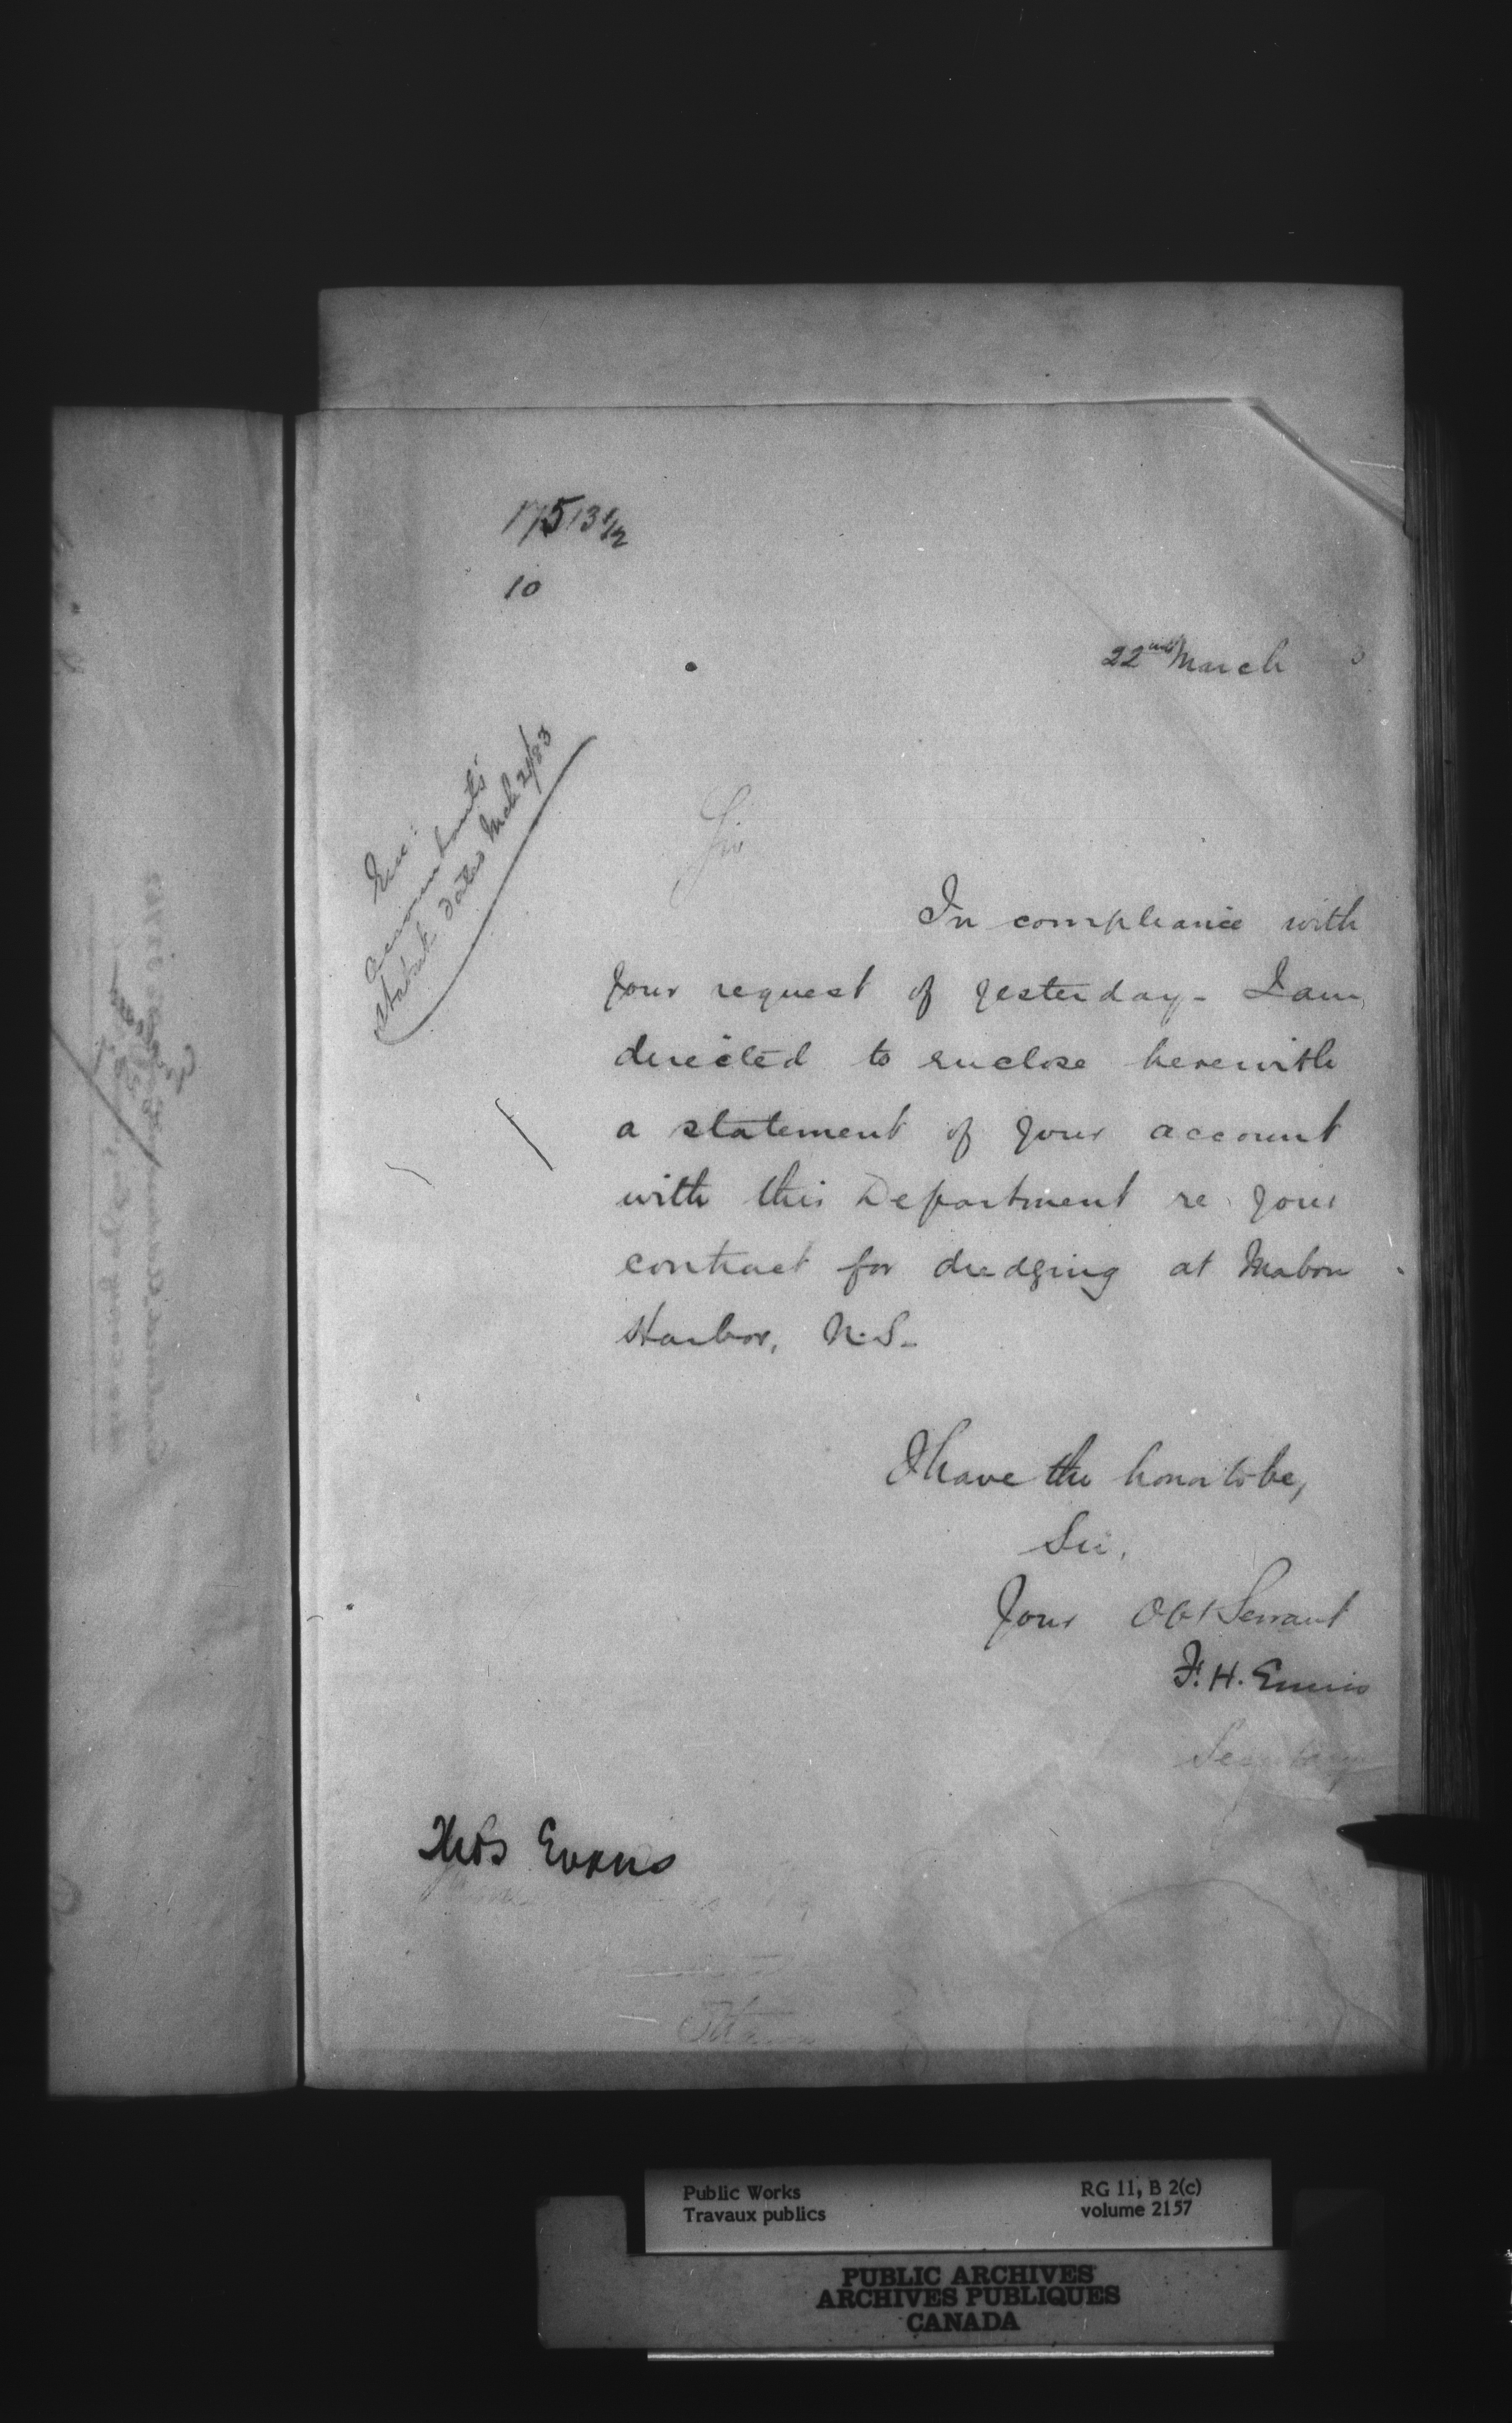 17513 1/2
10
22nd March 3
Enc:
accountants'
statmt dated Mch 21/83
Sir
In compliance with
your request of yesterday - I am,
directed to enclose herewith
a statement of your account
with this Department re your
contract for dredging at Mabou
Harbor, N.S-
I have the honor to be,
Sir,
Your Obt Servant
F. H. Ennis
Secretary
Thos Evans
Ottawa
Public Works
Travaux publics
RG 11, B 2(c)
volume 2157
PUBLIC ARCHIVES
ARCHIVES PUBLIQUES
CANADA